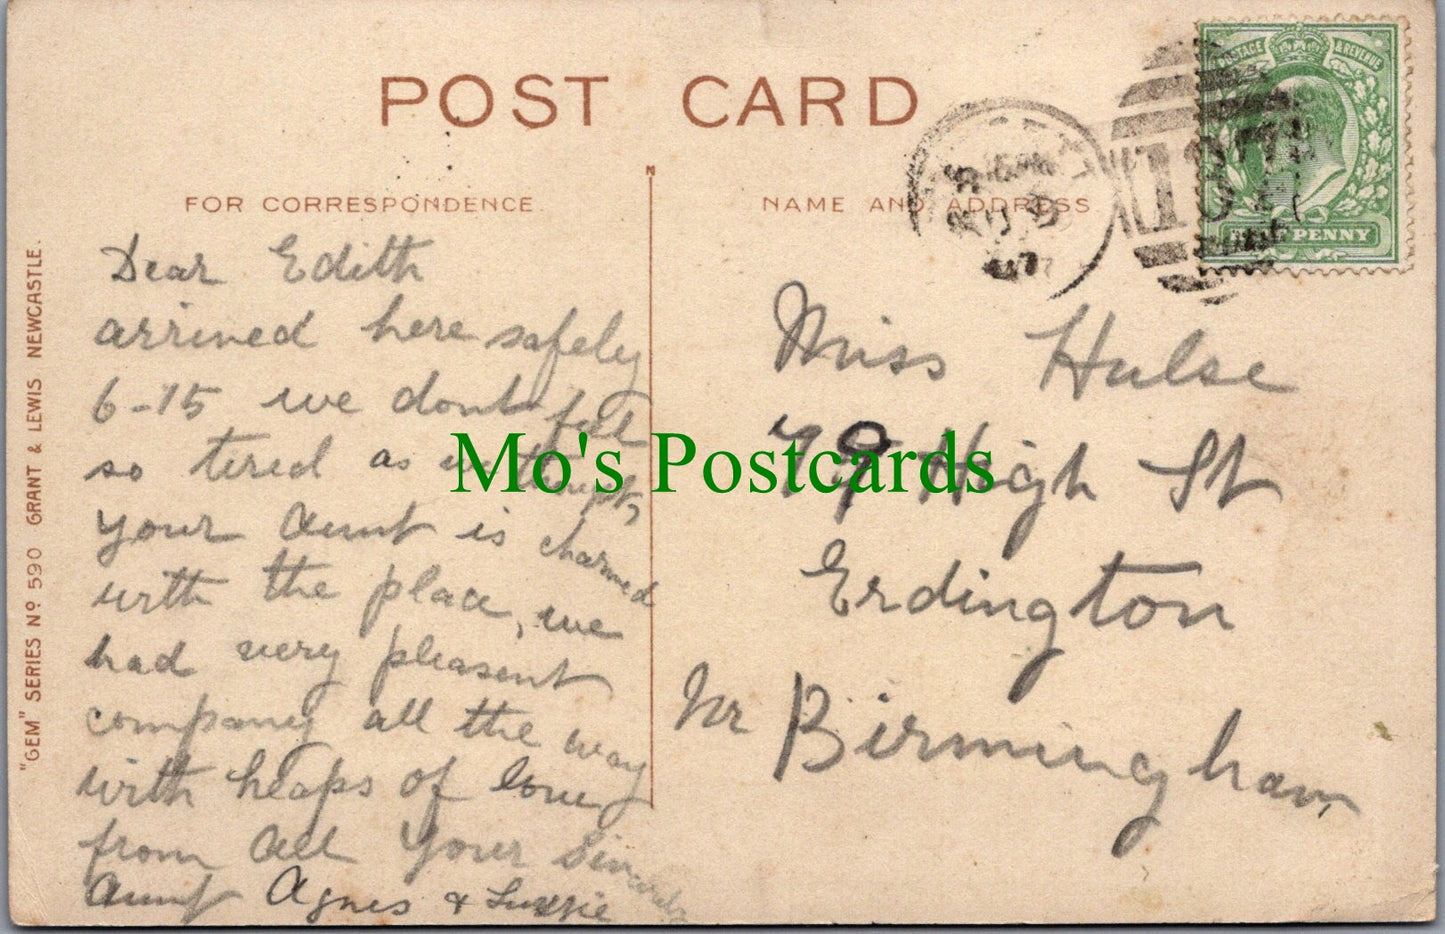 POST CARD
FOR CORRESPONDENCE.
NAME AND ADDRESS
POSTAGE & REVENUE
HALF PENNY
107
"GEM" SERIES Nº 590 GRANT & LEWIS NEWCASTLE.
Dear Edith
arrived here safely
6-15 we dont feel
so tired as
your Aunt is charmed
with the place, we
had very pleasent
company all the way
with heaps of love
from all Your
Aunt Agnes &
Miss Hulse
79 High St
Erdington
Nr Birmingham
Mo's Postcards